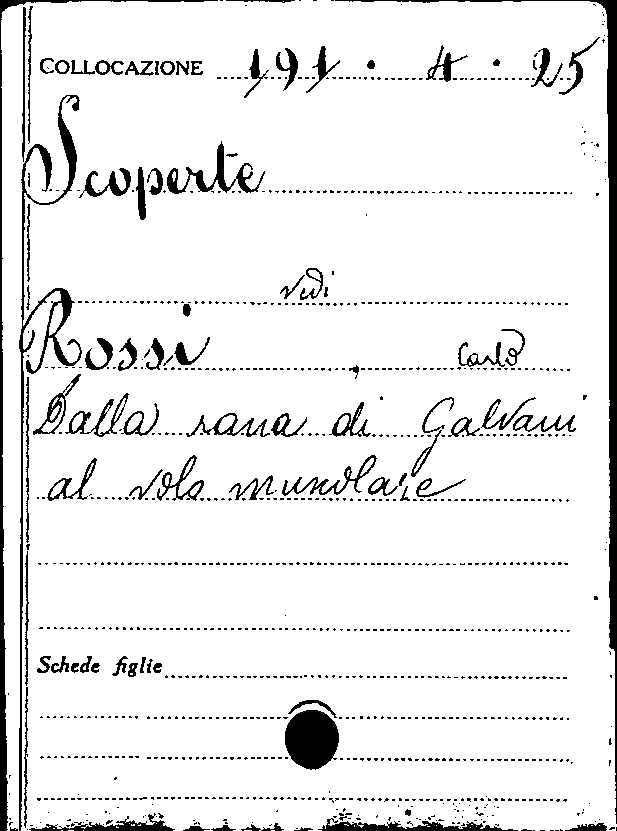 COLLOCAZIONE 191 · 4 · 25
Scoperte
vedi
Rossi, Carlo
Dalla rana di Galvani
al volo muscolare
Schede figlie